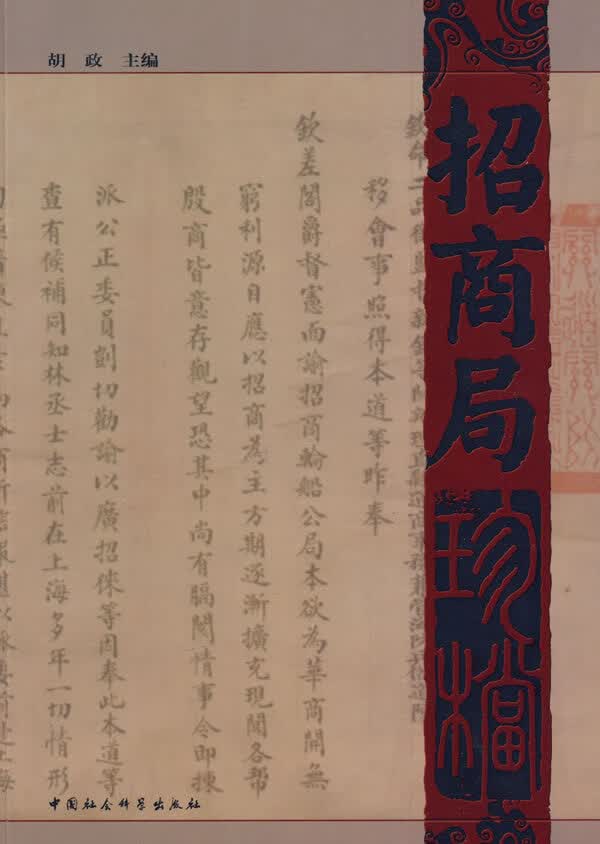 胡政 主编
招商局
珍档
移會事照得本道等昨奉
欽差閣爵督憲面諭招商輪船公局本欲為華商開無
窮利源目應以招商為主方期逐漸擴充現聞各幫
殷商皆意存觀望恐其中尚有膈閡情事令即揀
派公正委員剴切勸諭以廣招徠等因奉此本道等
查有候補同知林丞士志前在上海多年一切情形
中国社会科学出版社